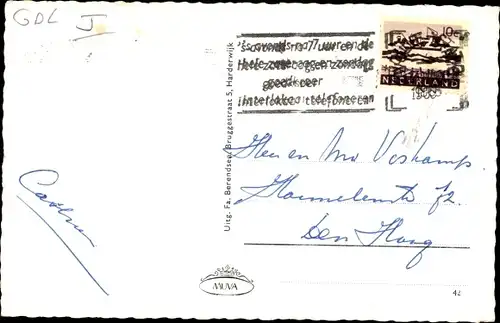 GDL J
10c
NEDERLAND
's avonds na 7 uur en de
hele zondag
goedkoper
interlokaal telefoneren
Uitg. Fa. Berendsen, Bruggestraat 5, Harderwijk
Heer en Mw Veskamp.
72.
Den Haag
MUVA
42